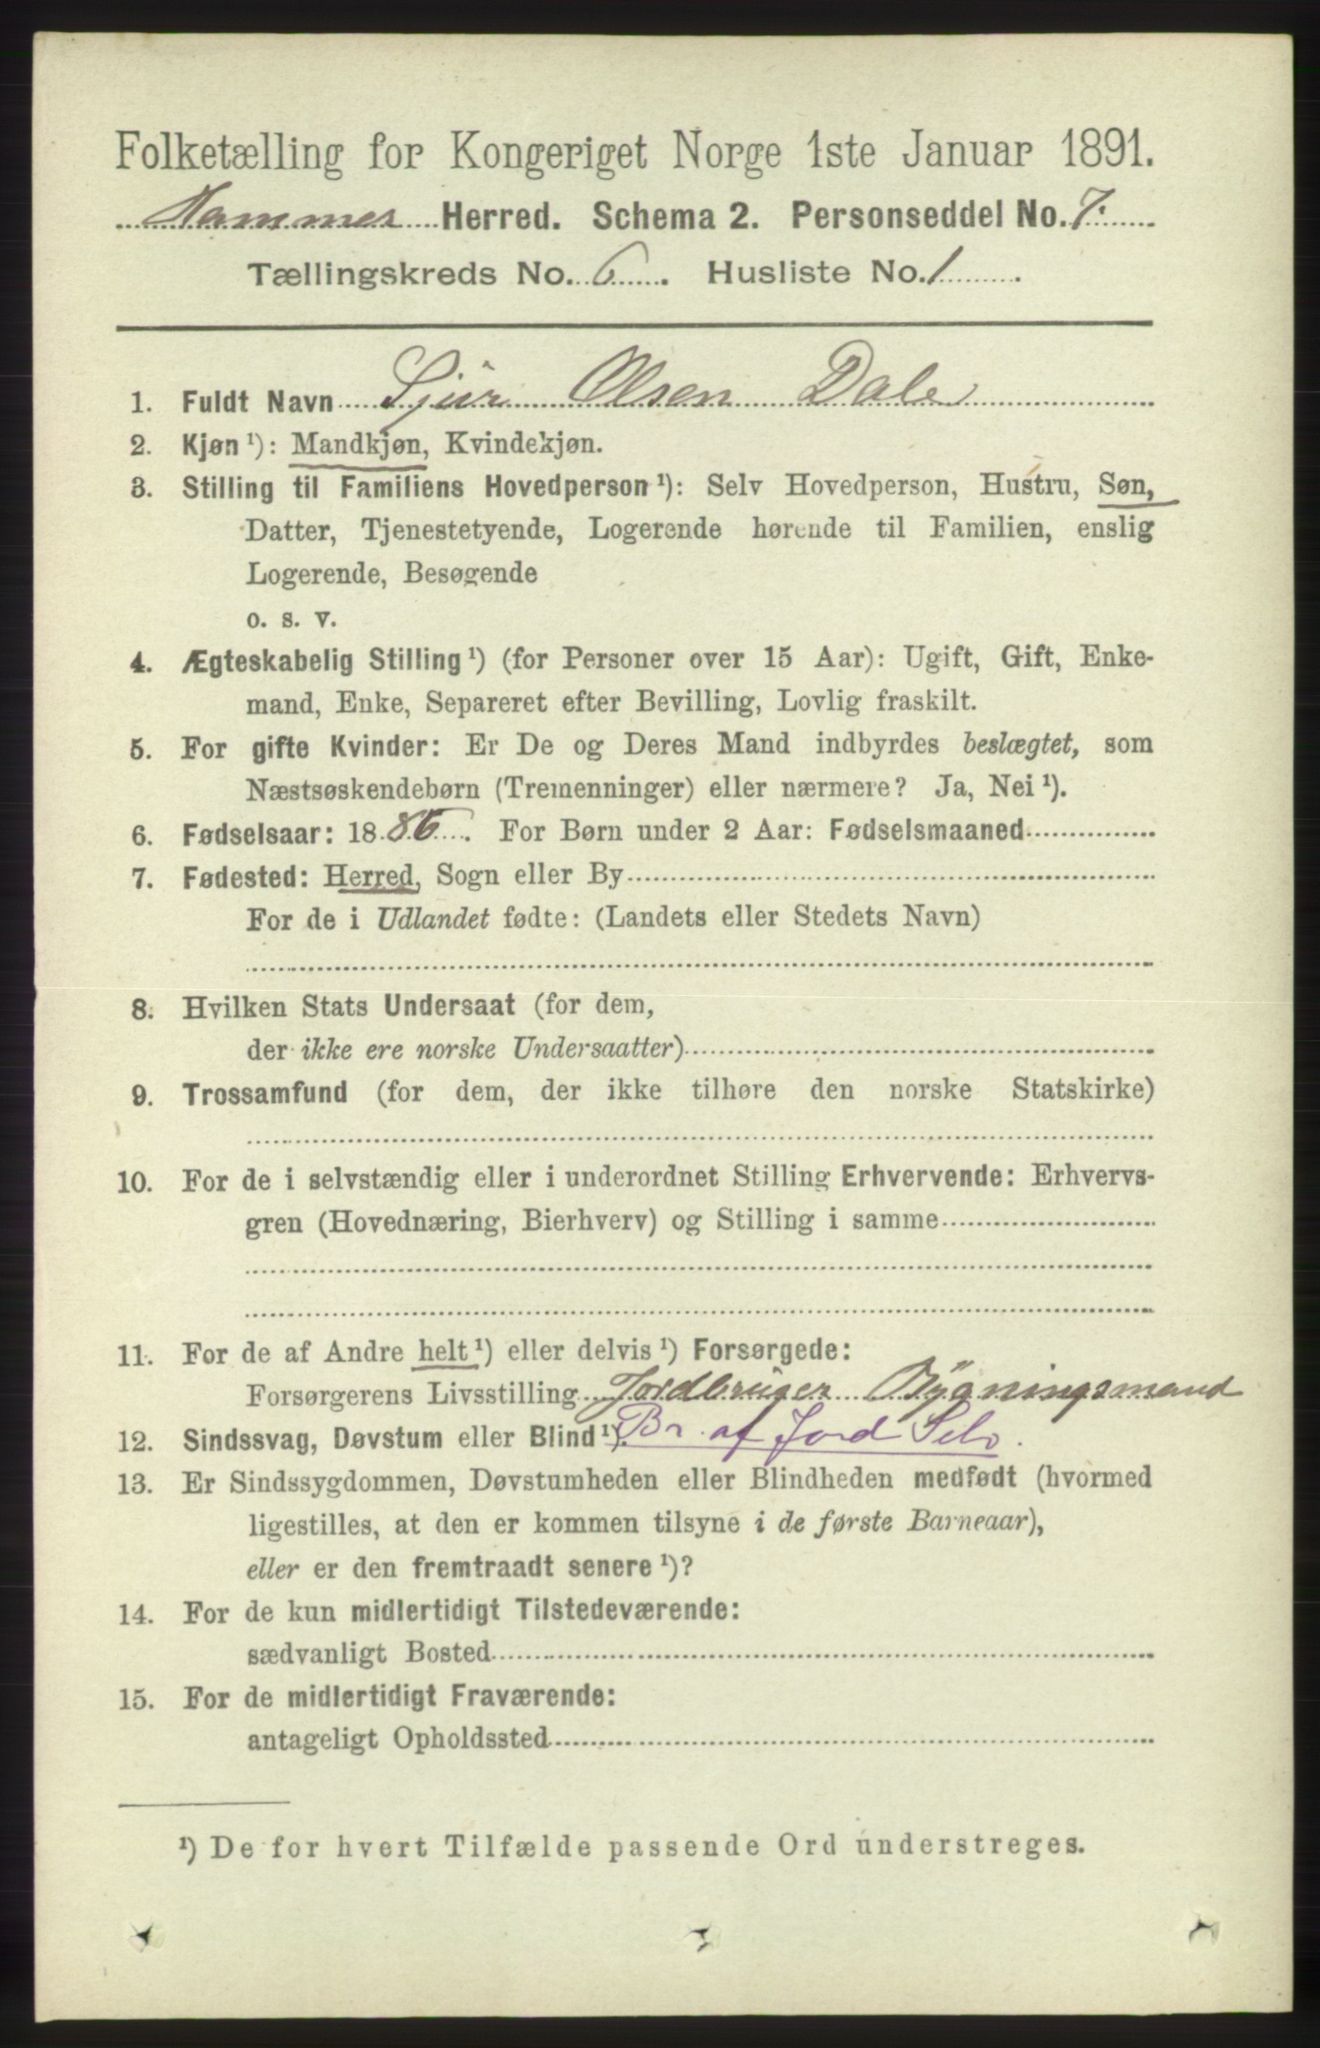 Folketælling for Kongeriget Norge 1ste Januar 1891.
Hammer Herred. Schema 2. Personseddel No. 7.
Tællingskreds No. 6. Husliste No. 1.
1. Fuldt Navn Sjur Olsen Dale
2. Kjøn ¹): Mandkjøn, Kvindekjøn.
3. Stilling til Familiens Hovedperson ¹): Selv Hovedperson, Hustru, Søn,
Datter, Tjenestetyende, Logerende hørende til Familien, enslig
Logerende, Besøgende
o. s. v.
4. Ægteskabelig Stilling ¹) (for Personer over 15 Aar): Ugift, Gift, Enke-
mand, Enke, Separeret efter Bevilling, Lovlig fraskilt.
5. For gifte Kvinder: Er De og Deres Mand indbyrdes beslægtet, som
Næstsøskendebørn (Tremenninger) eller nærmere? Ja, Nei ¹).
6. Fødselsaar: 1886. For Børn under 2 Aar: Fødselsmaaned
7. Fødested: Herred, Sogn eller By
For de i Udlandet fødte: (Landets eller Stedets Navn)
8. Hvilken Stats Undersaat (for dem,
der ikke ere norske Undersaatter)
9. Trossamfund (for dem, der ikke tilhøre den norske Statskirke)
10. For de i selvstændig eller i underordnet Stilling Erhvervende: Erhvervs-
gren (Hovednæring, Bierhverv) og Stilling i samme
11. For de af Andre helt ¹) eller delvis ¹) Forsørgede:
Forsørgerens Livsstilling Jordbruger Bygningsmand
12. Sindssvag, Døvstum eller Blind ¹). Br. af Jord Selv.
13. Er Sindssygdommen, Døvstumheden eller Blindheden medfødt (hvormed
ligestilles, at den er kommen tilsyne i de første Barneaar),
eller er den fremtraadt senere ¹)?
14. For de kun midlertidigt Tilstedeværende:
sædvanligt Bosted
15. For de midlertidigt Fraværende:
antageligt Opholdssted
¹) De for hvert Tilfælde passende Ord understreges.